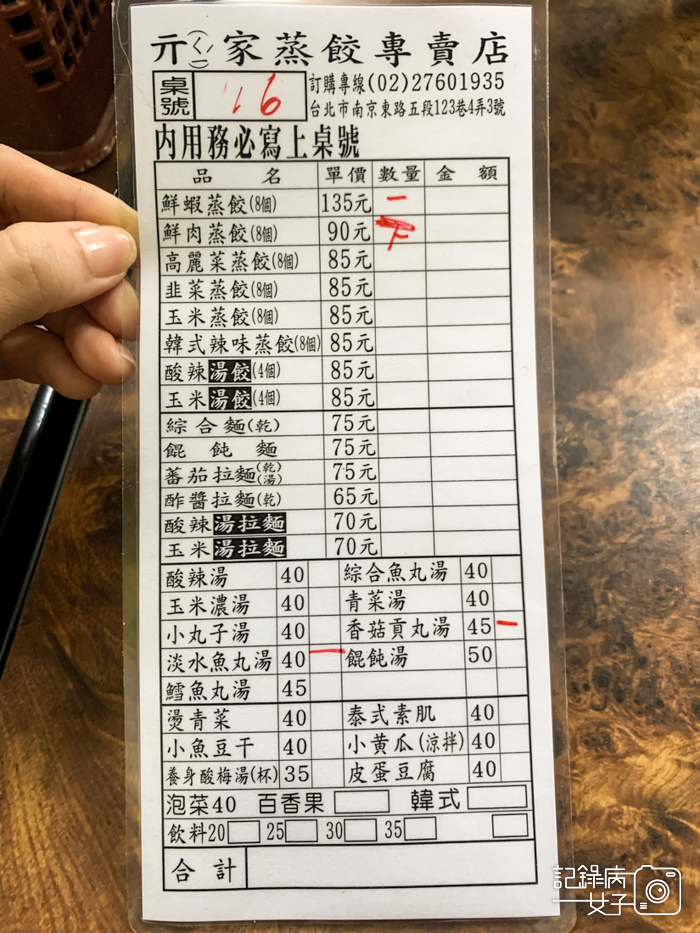 亓(ㄑㄧˊ)家蒸餃專賣店
桌號 16 訂購專線(02)27601935
台北市南京東路五段123巷4弄3號
內用務必寫上桌號
品名 單價 數量 金額
鮮蝦蒸餃(8個) 135元 一
鮮肉蒸餃(8個) 90元 下
高麗菜蒸餃(8個) 85元
韭菜蒸餃(8個) 85元
玉米蒸餃(8個) 85元
韓式辣味蒸餃(8個) 85元
酸辣湯餃(4個) 85元
玉米湯餃(4個) 85元
綜合麵(乾) 75元
餛飩麵 75元
蕃茄拉麵(乾)(湯) 75元
酢醬拉麵(乾) 65元
酸辣湯拉麵 70元
玉米湯拉麵 70元
酸辣湯 40 綜合魚丸湯 40
玉米濃湯 40 青菜湯 40
小丸子湯 40 香菇貢丸湯 45 一
淡水魚丸湯 40 一 餛飩湯 50
鱈魚丸湯 45
燙青菜 40 泰式素肌 40
小魚豆干 40 小黃瓜(涼拌) 40
養身酸梅湯(杯) 35 皮蛋豆腐 40
泡菜40 百香果 韓式
飲料20 25 30 35
合計
記錄病
女子